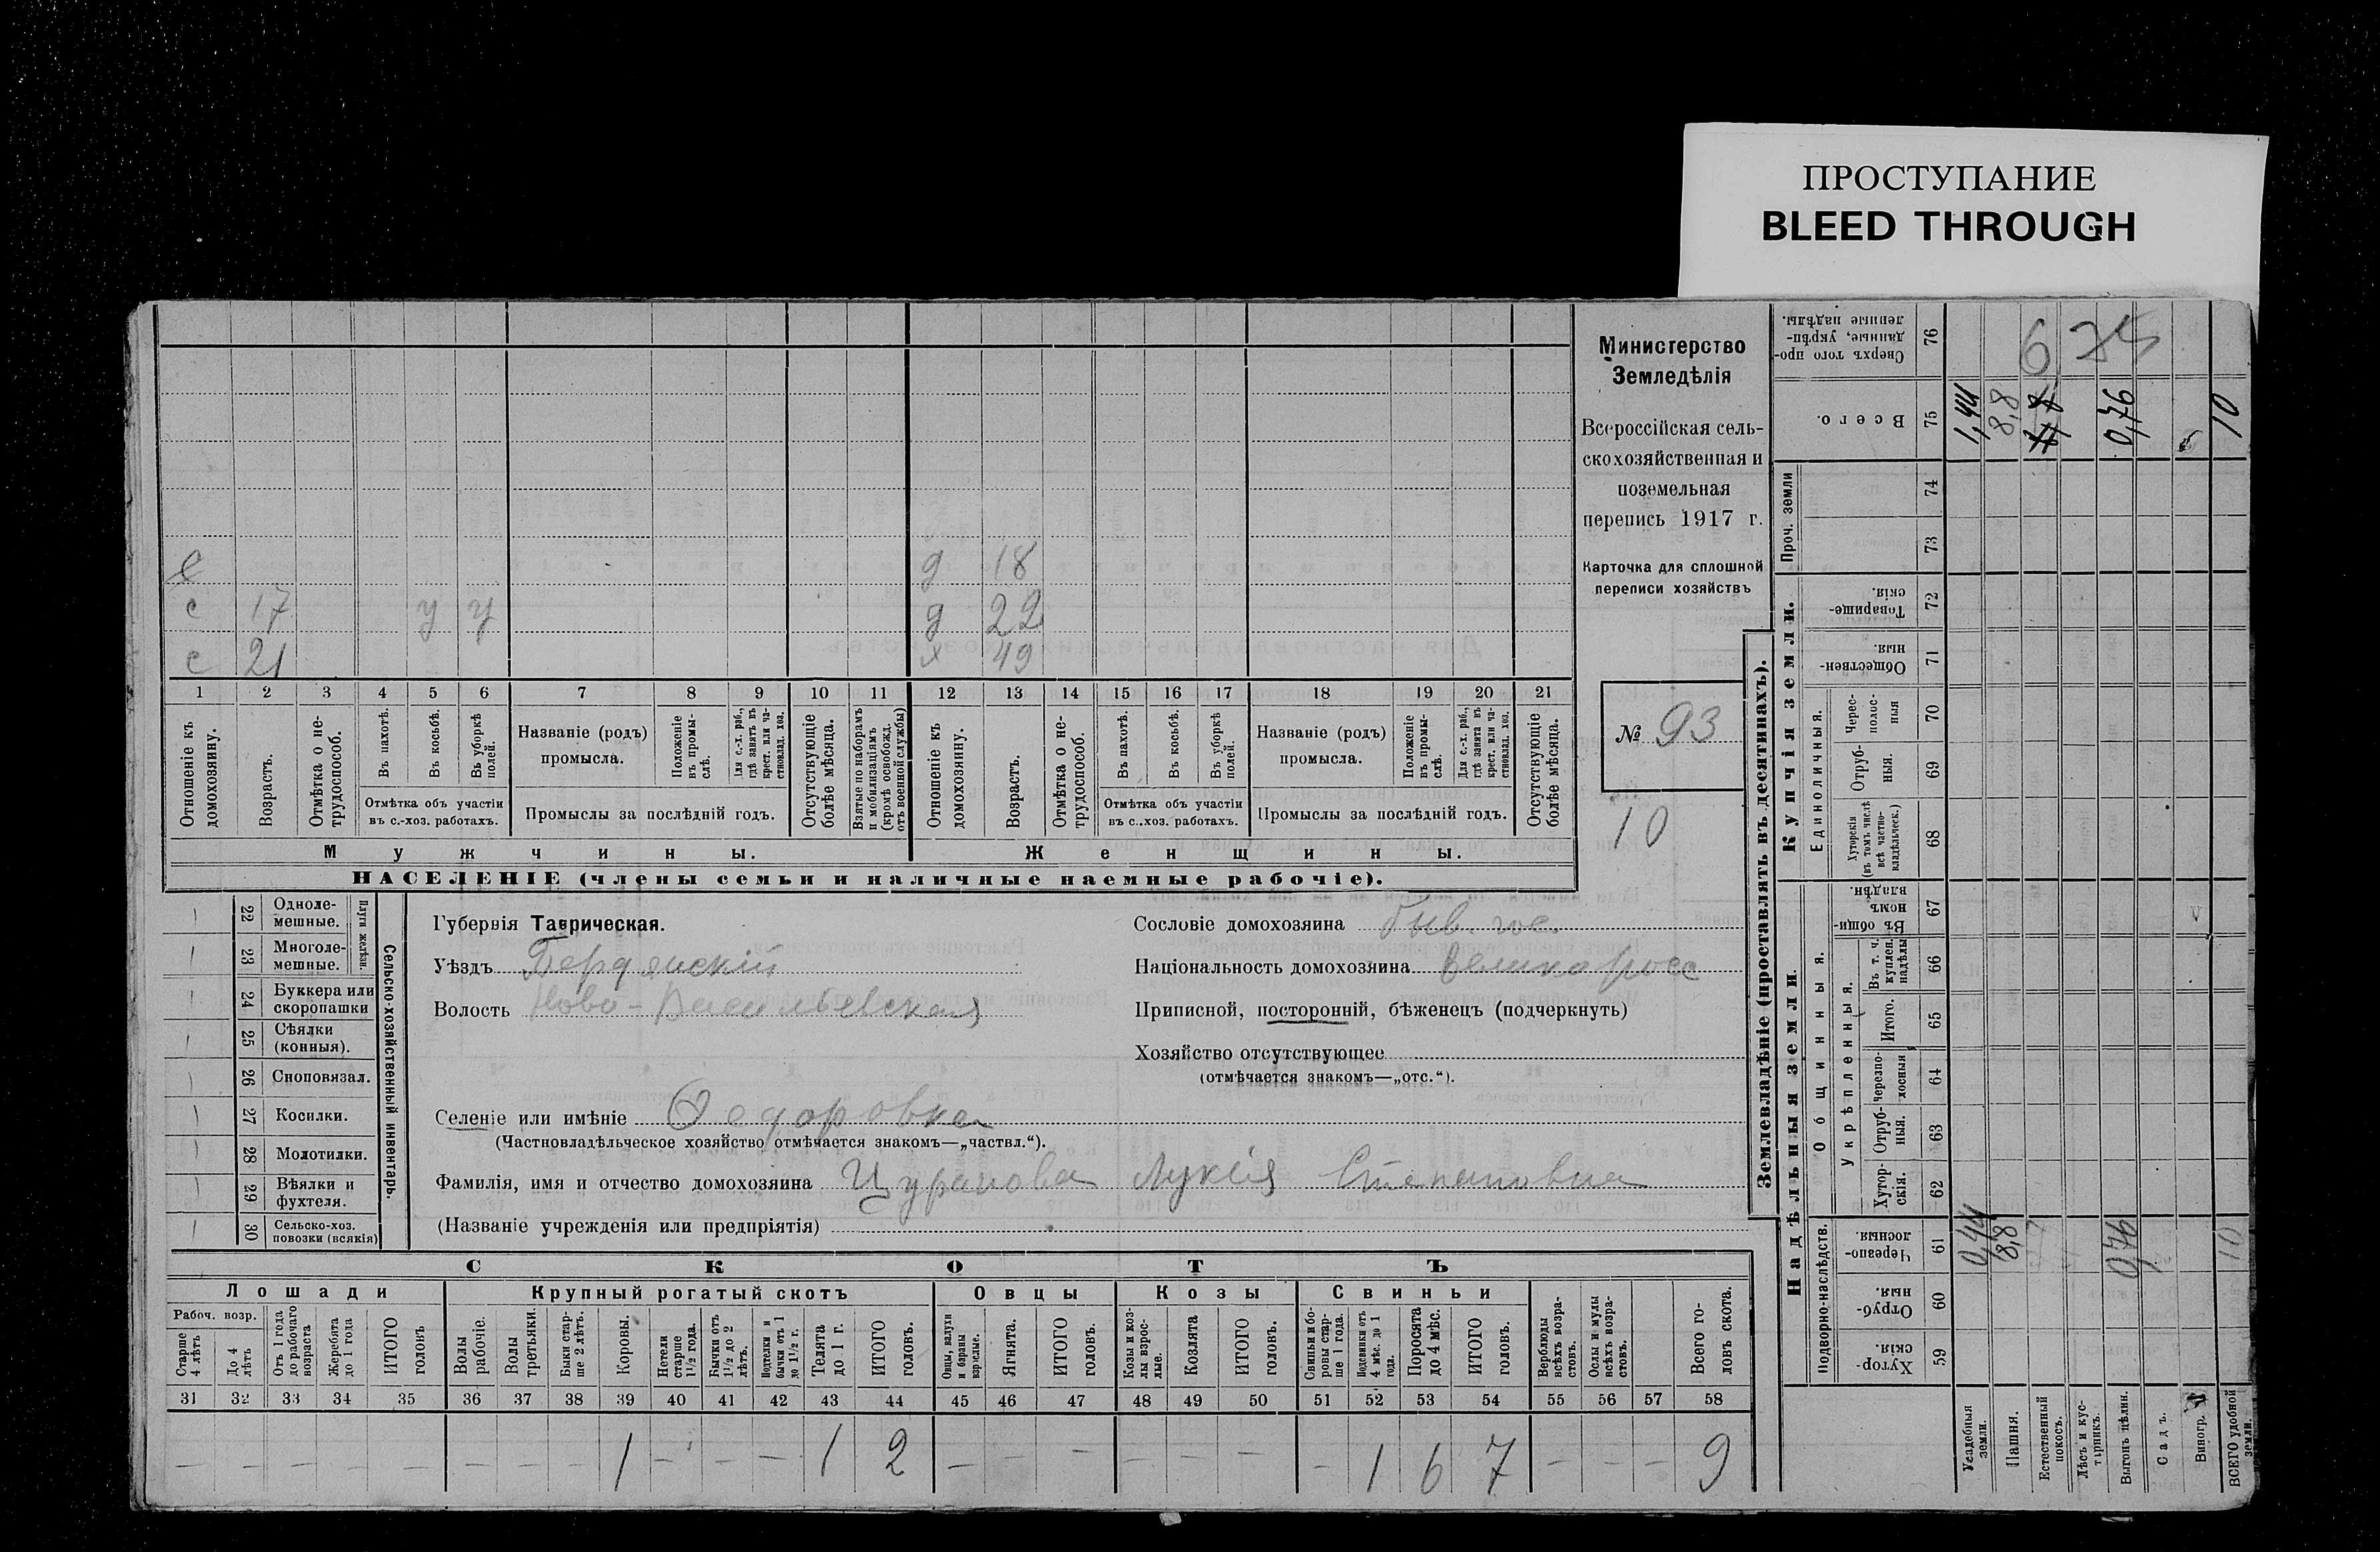 ПРОСТУПАНИЕ
BLEED THROUGH
Министерство
Земледѣлія
Всероссійская сель-
скохозяйственная и
поземельная
перепись 1917 г.
Карточка для сплошной
переписи хозяйствъ
№ 93
10
д 18
с 17 у у д 22
с 21 х 49
1 2 3 4 5 6 7 8 9 10 11 12 13 14 15 16 17 18 19 20 21
Отношеніе къ домохозяину.
Возрастъ.
Отмѣтка о не-трудоспособ.
Въ пахотѣ.
Въ косьбѣ.
Въ уборкѣ полей.
Отмѣтка объ участіи
въ с.-хоз. работахъ.
Названіе (родъ)
промысла.
Положеніе въ промы-слѣ.
Для с.-х. раб., гдѣ занятъ въ крест. или ча-стновлад. хоз.
Промыслы за послѣдній годъ.
Отсутствующіе болѣе мѣсяца.
Взятые по наборамъ и мобилизаціямъ (кромѣ освобожд. отъ военной службы)
Отношеніе къ домохозяину.
Возрастъ.
Отмѣтка о не-трудоспособ.
Въ пахотѣ.
Въ косьбѣ.
Въ уборкѣ полей.
Отмѣтка объ участіи
въ с.-хоз. работахъ.
Названіе (родъ)
промысла.
Положеніе въ промы-слѣ.
Для с.-х. раб., гдѣ занята въ крест. или ча-стновлад. хоз.
Промыслы за послѣдній годъ.
Отсутствующіе болѣе мѣсяца.
Мужчины. Женщины.
НАСЕЛЕНІЕ (члены семьи и наличные наемные рабочіе).
22 Одноле-мешные.
23 Многоле-мешные.
Плуги желѣзн.
24 Буккера или скоропашки
25 Сѣялки (конныя).
26 Сноповязал.
27 Косилки.
28 Молотилки.
29 Вѣялки и фухтеля.
30 Сельско-хоз. повозки (всякія)
Сельско-хозяйственный инвентарь.
Губернія Таврическая.
Уѣздъ Бердянскій
Волость Ново-Васильевская
Сословіе домохозяина быв. гос.
Національность домохозяина великоросс
Приписной, посторонній, бѣженецъ (подчеркнуть)
Хозяйство отсутствующее
(отмѣчается знакомъ—„отс.“).
Селеніе или имѣніе Федоровка
(Частновладѣльческое хозяйство отмѣчается знакомъ—„частвл.“).
Фамилія, имя и отчество домохозяина Цуранова Лукія Степановна
(Названіе учрежденія или предпріятія)
СКОТЪ
Лошади Крупный рогатый скотъ Овцы Козы Свиньи
Рабоч. возр.
Старше 4 лѣтъ
До 4 лѣтъ
Отъ 1 года до рабочаго возраста
Жеребята до 1 года
ИТОГО головъ
Волы рабочіе.
Волы третьяки.
Быки стар-ше 2 лѣтъ.
Коровы.
Нетели старше 1½ года.
Бычки отъ 1½ до 2 лѣтъ.
Подтелки и бычки отъ 1 до 1½ г.
Телята до 1 г.
ИТОГО головъ.
Овцы, валухи и бараны взрослые.
Ягнята.
ИТОГО головъ.
Козы и коз-лы взрос-лые.
Козлята
ИТОГО головъ.
Свиньи и бо-ровы стар-ше 1 года.
Подсвинки отъ 4 мѣс. до 1 года.
Поросята до 4 мѣс.
ИТОГО головъ.
Верблюды всѣхъ возра-стовъ.
Ослы и мулы всѣхъ возра-стовъ.
Всего го-ловъ скота.
31 32 33 34 35 36 37 38 39 40 41 42 43 44 45 46 47 48 49 50 51 52 53 54 55 56 57 58
— — — — — — — — 1 — — — 1 2 — — — — — — — 1 6 7 — — — 9
Землевладѣніе (проставлять въ десятинахъ).
Сверхъ того про-данные, укрѣп-ленные надѣлы. 76
6 75
Всего. 75
1,44 8,8 0,76 10
Проч. земли
74
73
Купчія земли.
Товарище-скія. 72
Обществен-ныя. 71
Единоличныя.
Черес-полос-ныя 70
Отруб-ныя. 69
Хуторскія (въ томъ числѣ всѣ частно-владѣльческ.) 68
Надѣльныя земли.
Общинныя.
Въ общин-номъ владѣн. 67
Укрѣпленныя.
Въ т. ч. куплен. надѣлы 66
Итого. 65
Черезпо-лосныя 64
Отруб-ныя. 63
Хутор-скія. 62
Подворно-наслѣдств.
Черезпо-лосныя. 61
0,44 8,8 0,76 10
Отруб-ныя. 60
Хутор-скія. 59
Усадебныя земли.
Пашня.
Естественный покосъ.
Лѣсъ и кус-тарникъ.
Выгонъ цѣлин.
Садъ.
Виногр.
ВСЕГО удобной земли.